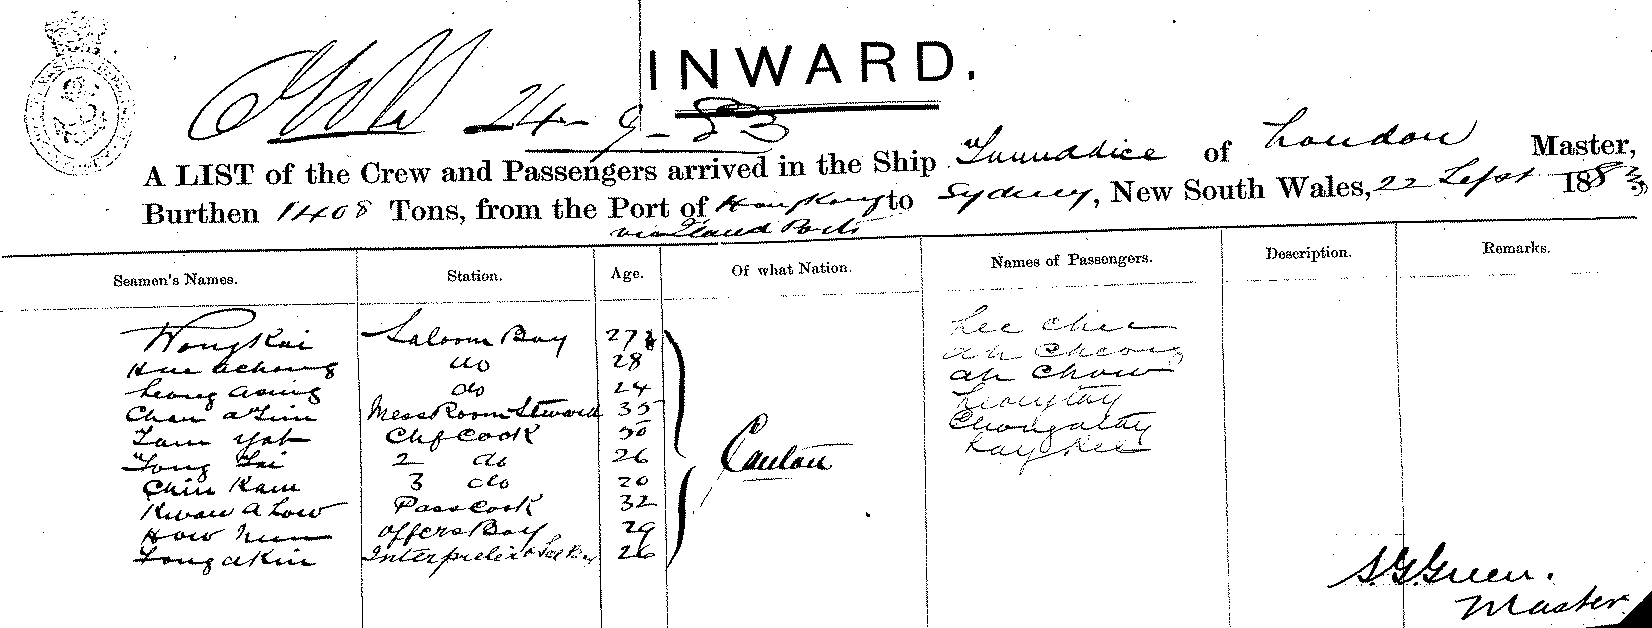 INWARD.
24-9-83
A LIST of the Crew and Passengers arrived in the Ship of London Master,
Burthen 1408 Tons, from the Port of HongKong to Sydney, New South Wales, 22 Sept 1883
via Island Ports
Seamen's Names. Station. Age. Of what Nation. Names of Passengers. Description. Remarks.
Wong Kai Saloon Boy 27 Lee Chee
Hue Achong do 28 Ah Cheong
Leong Asing do 24 Ah Chow
Chan a Tim Mess Room Steward 35 Leong Tay
Tam Yok Chf Cook 50 Chongatay
Tong Tai 2 do 26 Canton
Chin Kam 3 do 20
Kwan A Low Pass Cook 32
How Nun Offers Boy 29
Tong Akin Interpreter 26
S.G. Green.
Master